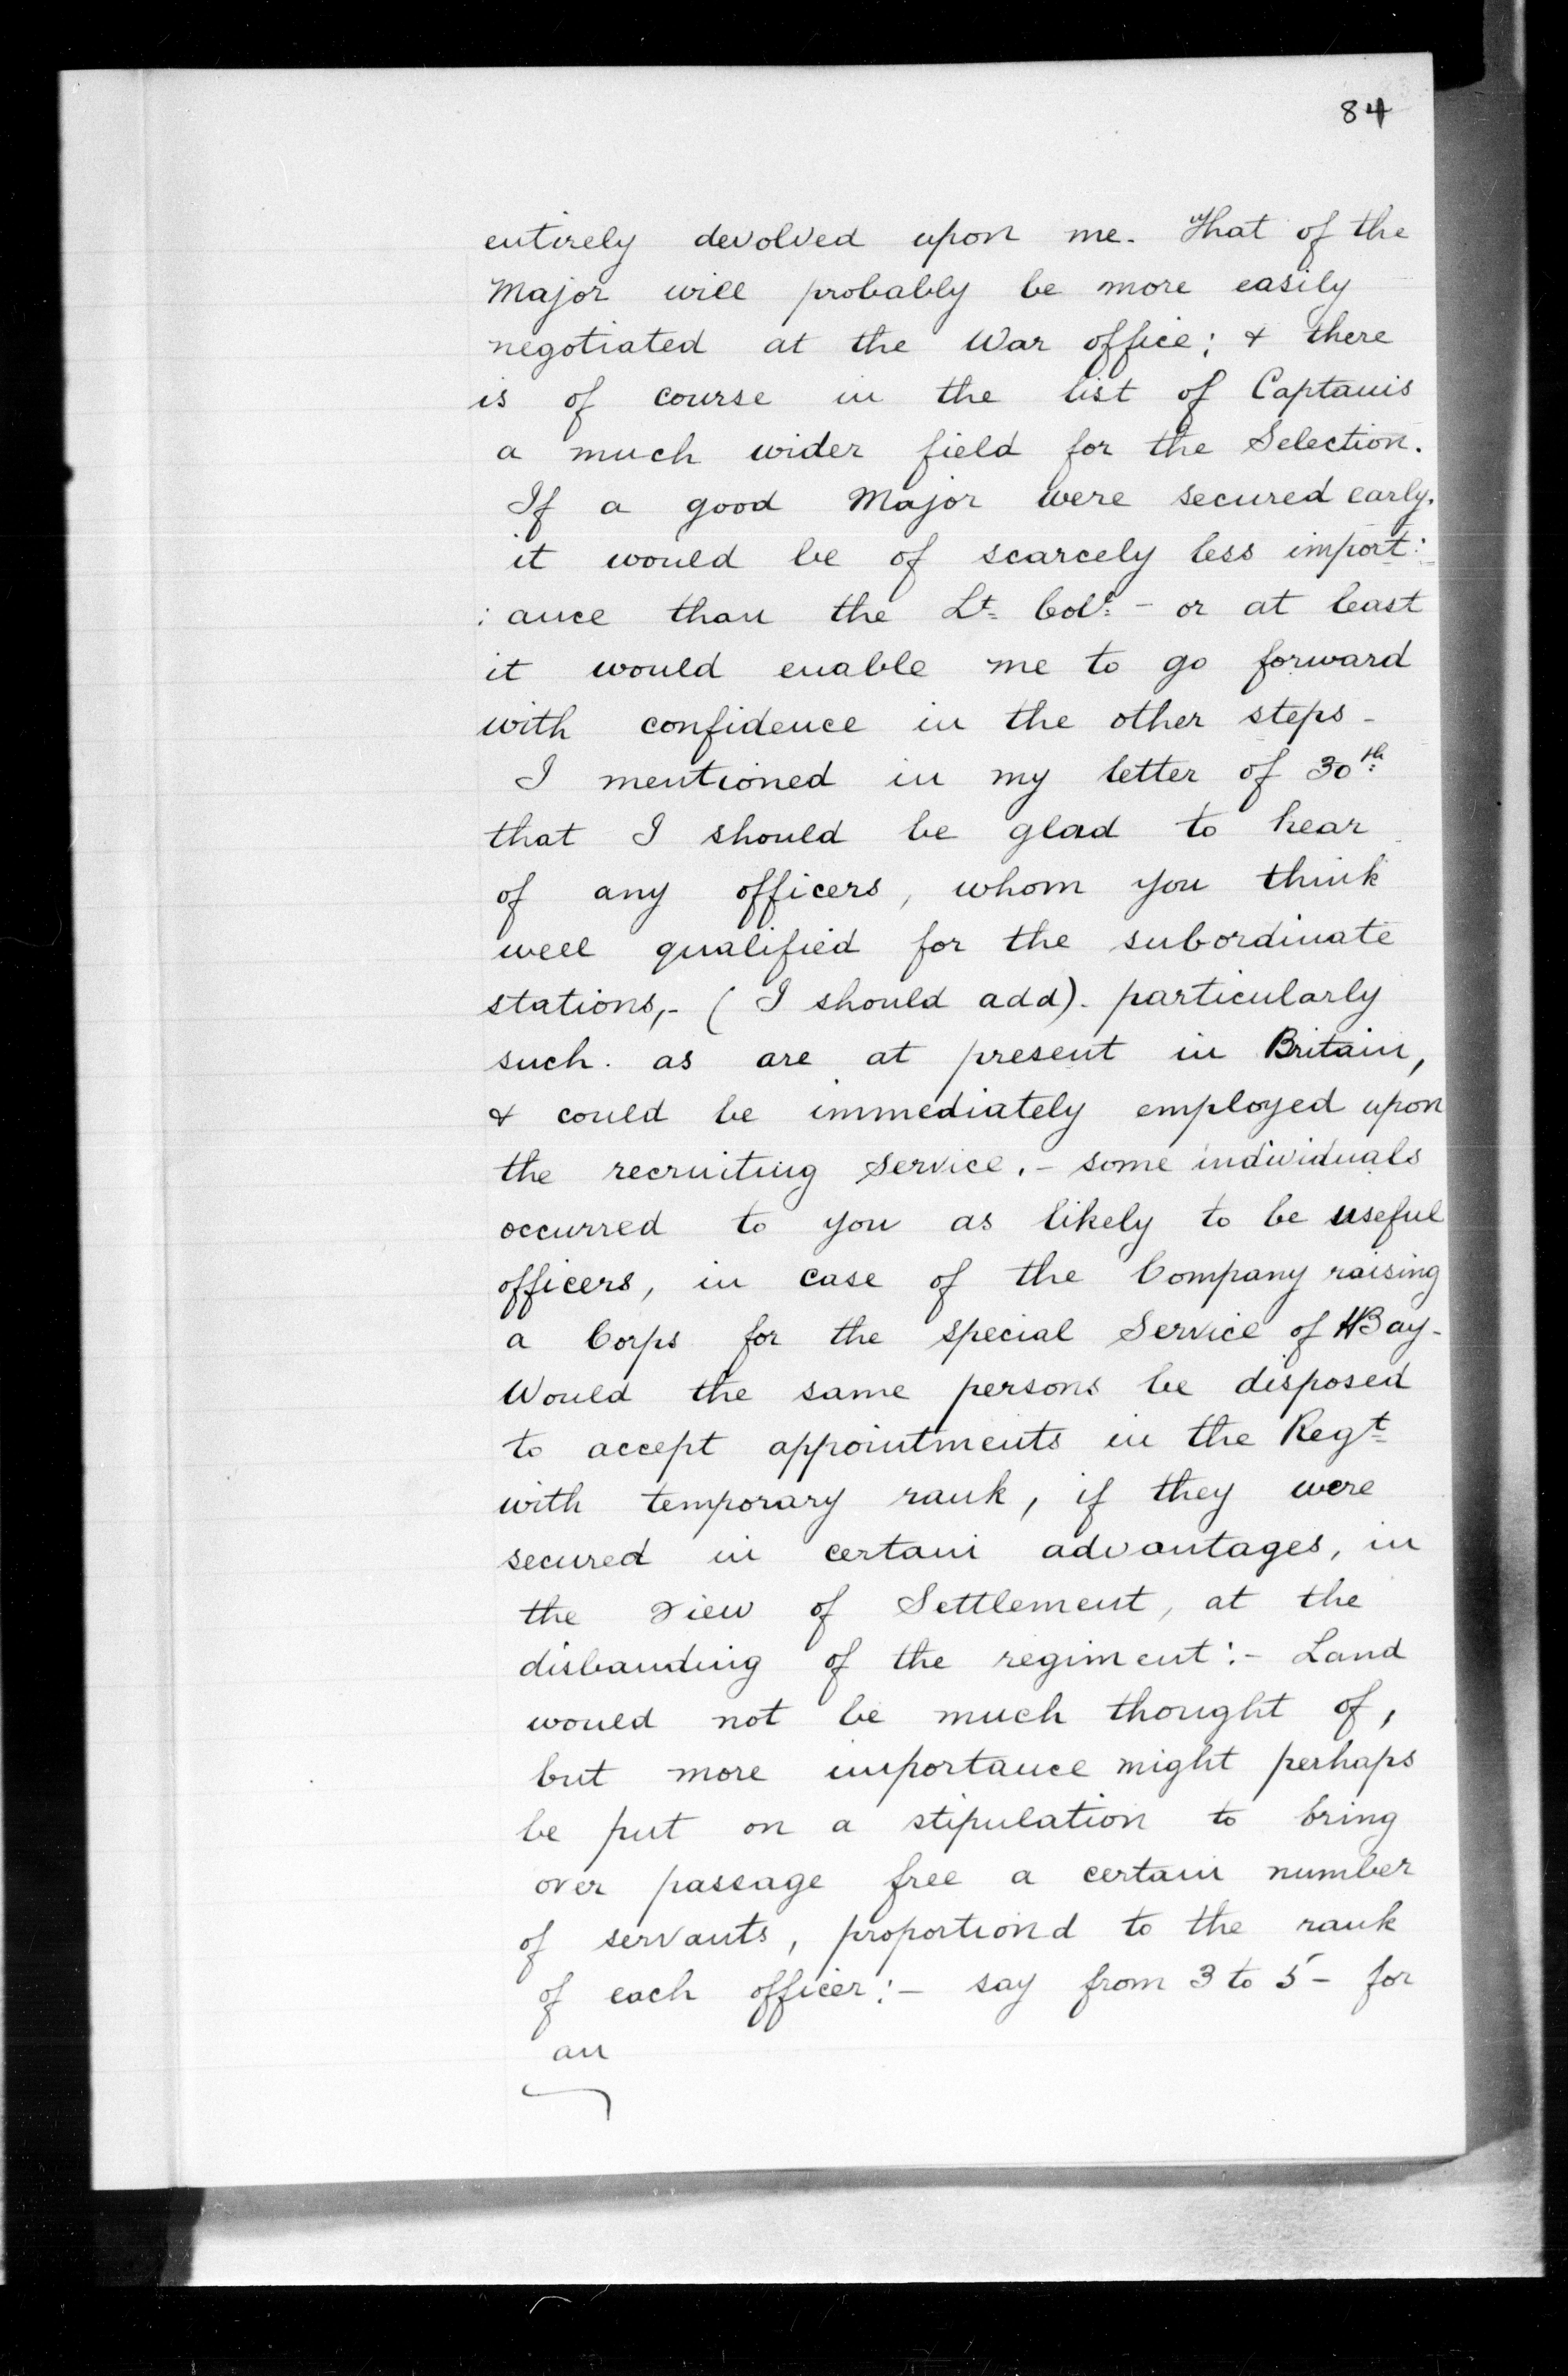 84
entirely devolved upon me. That of the
Major will probably be more easily
negotiated at the War office; & there
is of course in the list of Captains
a much wider field for the Selection.
If a good Major were secured early.
it would be of scarcely less import:
: ance than the Lt. Col - or at least
it would enable me to go forward
with confidence in the other steps -
I mentioned in my letter of 30th
that I should be glad to hear
of any officers, whom you think
well qualified for the subordinate
stations,- ( I should add). particularly
such. as are at present in Britain,
& could be immediately employed upon
the recruiting Service. - some individuals
occurred to you as likely to be useful
officers, in case of the Company raising
a Corps for the special Service of HBay -
Would the same persons be disposed
to accept appointments in the Regt
with temporary rank, if they were
secured in certain advantages, in
the view of Settlement, at the
disbanding of the regiment :- Land
would not be much thought of,
but more importance might perhaps
be put on a stipulation to bring
over passage free a certain number
of servants, proportiond to the rank
of each officer :- say from 3 to 5 - for
an